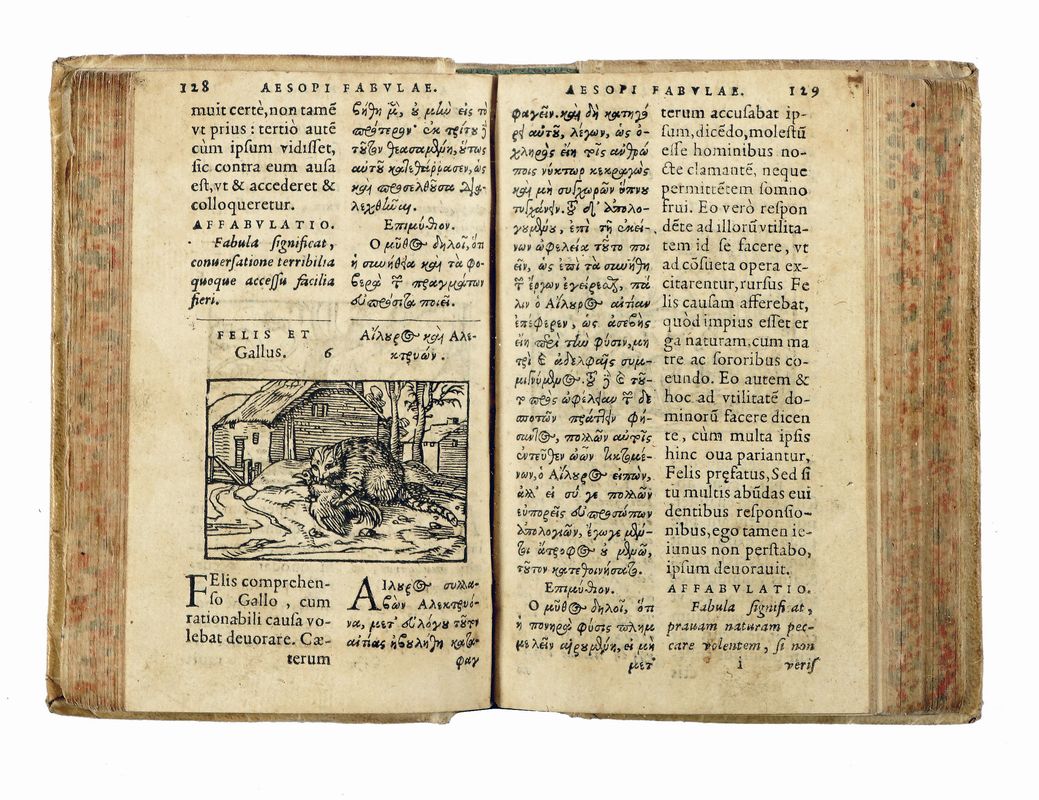 128 AESOPI FABVLAE.
muit certè, non tamẽ
vt prius: tertiò autẽ
cùm ipsum vidisset,
sic contra eum ausa
est, vt & accederet &
colloqueretur.
AFFABVLATIO.
Fabula significat,
conuersatione terribilia
quoque accessu facilia
fieri.
βήθη μὲν, οὐ μὴν εἰς τὸ
πρότερον· ἐκ τρίτου δὲ
τοῦτον θεασαμένη, οὕτως
αὐτοῦ κατεθάρρησεν, ὡς
καὶ προσελθοῦσα δια-
λεχθῆναι.
Επιμύθιον.
Ο μῦθος δηλοῖ, ὅτι
ἡ συνήθεια καὶ τὰ φο-
βερὰ τῶν πραγμάτων
εὐπρόσιτα ποιεῖ.
FELIS ET
Gallus. 6
Αἴλουρος καὶ Αλε-
κτρυών.
FElis comprehen-
so Gallo, cum
rationabili causa vo-
lebat deuorare. Cæ-
terum
ΑΙλουρος συλλα-
βὼν Αλεκτρυό-
να, μετ' εὐλόγου τοῦτον
αἰτίας ἠβουλήθη κατα-
φαγ
AESOPI FABVLAE. 129
φαγεῖν. καὶ δὴ κατηγό
ρει αὐτοῦ, λέγων, ὡς ὀ-
χληρὸς εἴη τοῖς ἀνθρώ
ποις νύκτωρ κεκραγὼς
καὶ μὴ συγχωρῶν ὕπνου
τυγχάνειν. τοῦ δ' ἀπολο-
γουμένου, ἐπὶ τῇ ἐκεί-
νων ὠφελείᾳ τοῦτο ποι
εῖν, ὡς ἐπὶ τὰ συνήθη
τῶν ἔργων ἐγείρεσθαι, πά
λιν ὁ Αἴλουρος αἰτίαν
ἐπέφερεν, ὡς ἀσεβὴς
εἴη περὶ τὴν φύσιν, μη
τρὶ καὶ ἀδελφαῖς συμ-
μιγνύμενος. τοῦ δὲ καὶ τοῦ-
το πρὸς ὠφέλειαν τῶν δε
σποτῶν πράττειν φή-
σαντος, πολλῶν αὐτοῖς
ἐντεῦθεν ὠῶν τικτομέ-
νων, ὁ Αἴλουρος εἰπὼν,
ἀλλ' εἰ σύ γε πολλῶν
εὐπορεῖς εὐπροσώπων
ἀπολογιῶν, ἔγωγε μέν-
τοι ἄτροφος οὐ μενῶ,
τοῦτον κατεθοινήσατο.
Επιμύθιον.
Ο μῦθος δηλοῖ, ὅτι
ἡ πονηρὰ φύσις πλημ
μελεῖν αἱρουμένη, εἰ μὴ
μετ'
terum accusabat ip-
sum, dicẽdo, molestũ
esse hominibus no-
cte clamantẽ, neque
permittẽtem somno
frui. Eo verò respon
dẽte ad illorũ vtilita-
tem id se facere, vt
ad cõsueta opera ex-
citarentur, rursus Fe
lis causam afferebat,
quòd impius esset er
ga naturam, cum ma
tre ac sororibus co-
eundo. Eo autem &
hoc ad vtilitatẽ do-
minorũ facere dicen
te, cùm multa ipsis
hinc oua pariantur,
Felis pręfatus, Sed si
tu multis abũdas eui
dentibus responsio-
nibus, ego tamen ie-
iunus non perstabo,
ipsum deuorauit.
AFFABVLATIO.
Fabula significat,
prauam naturam pec-
care volentem, si non
i veris